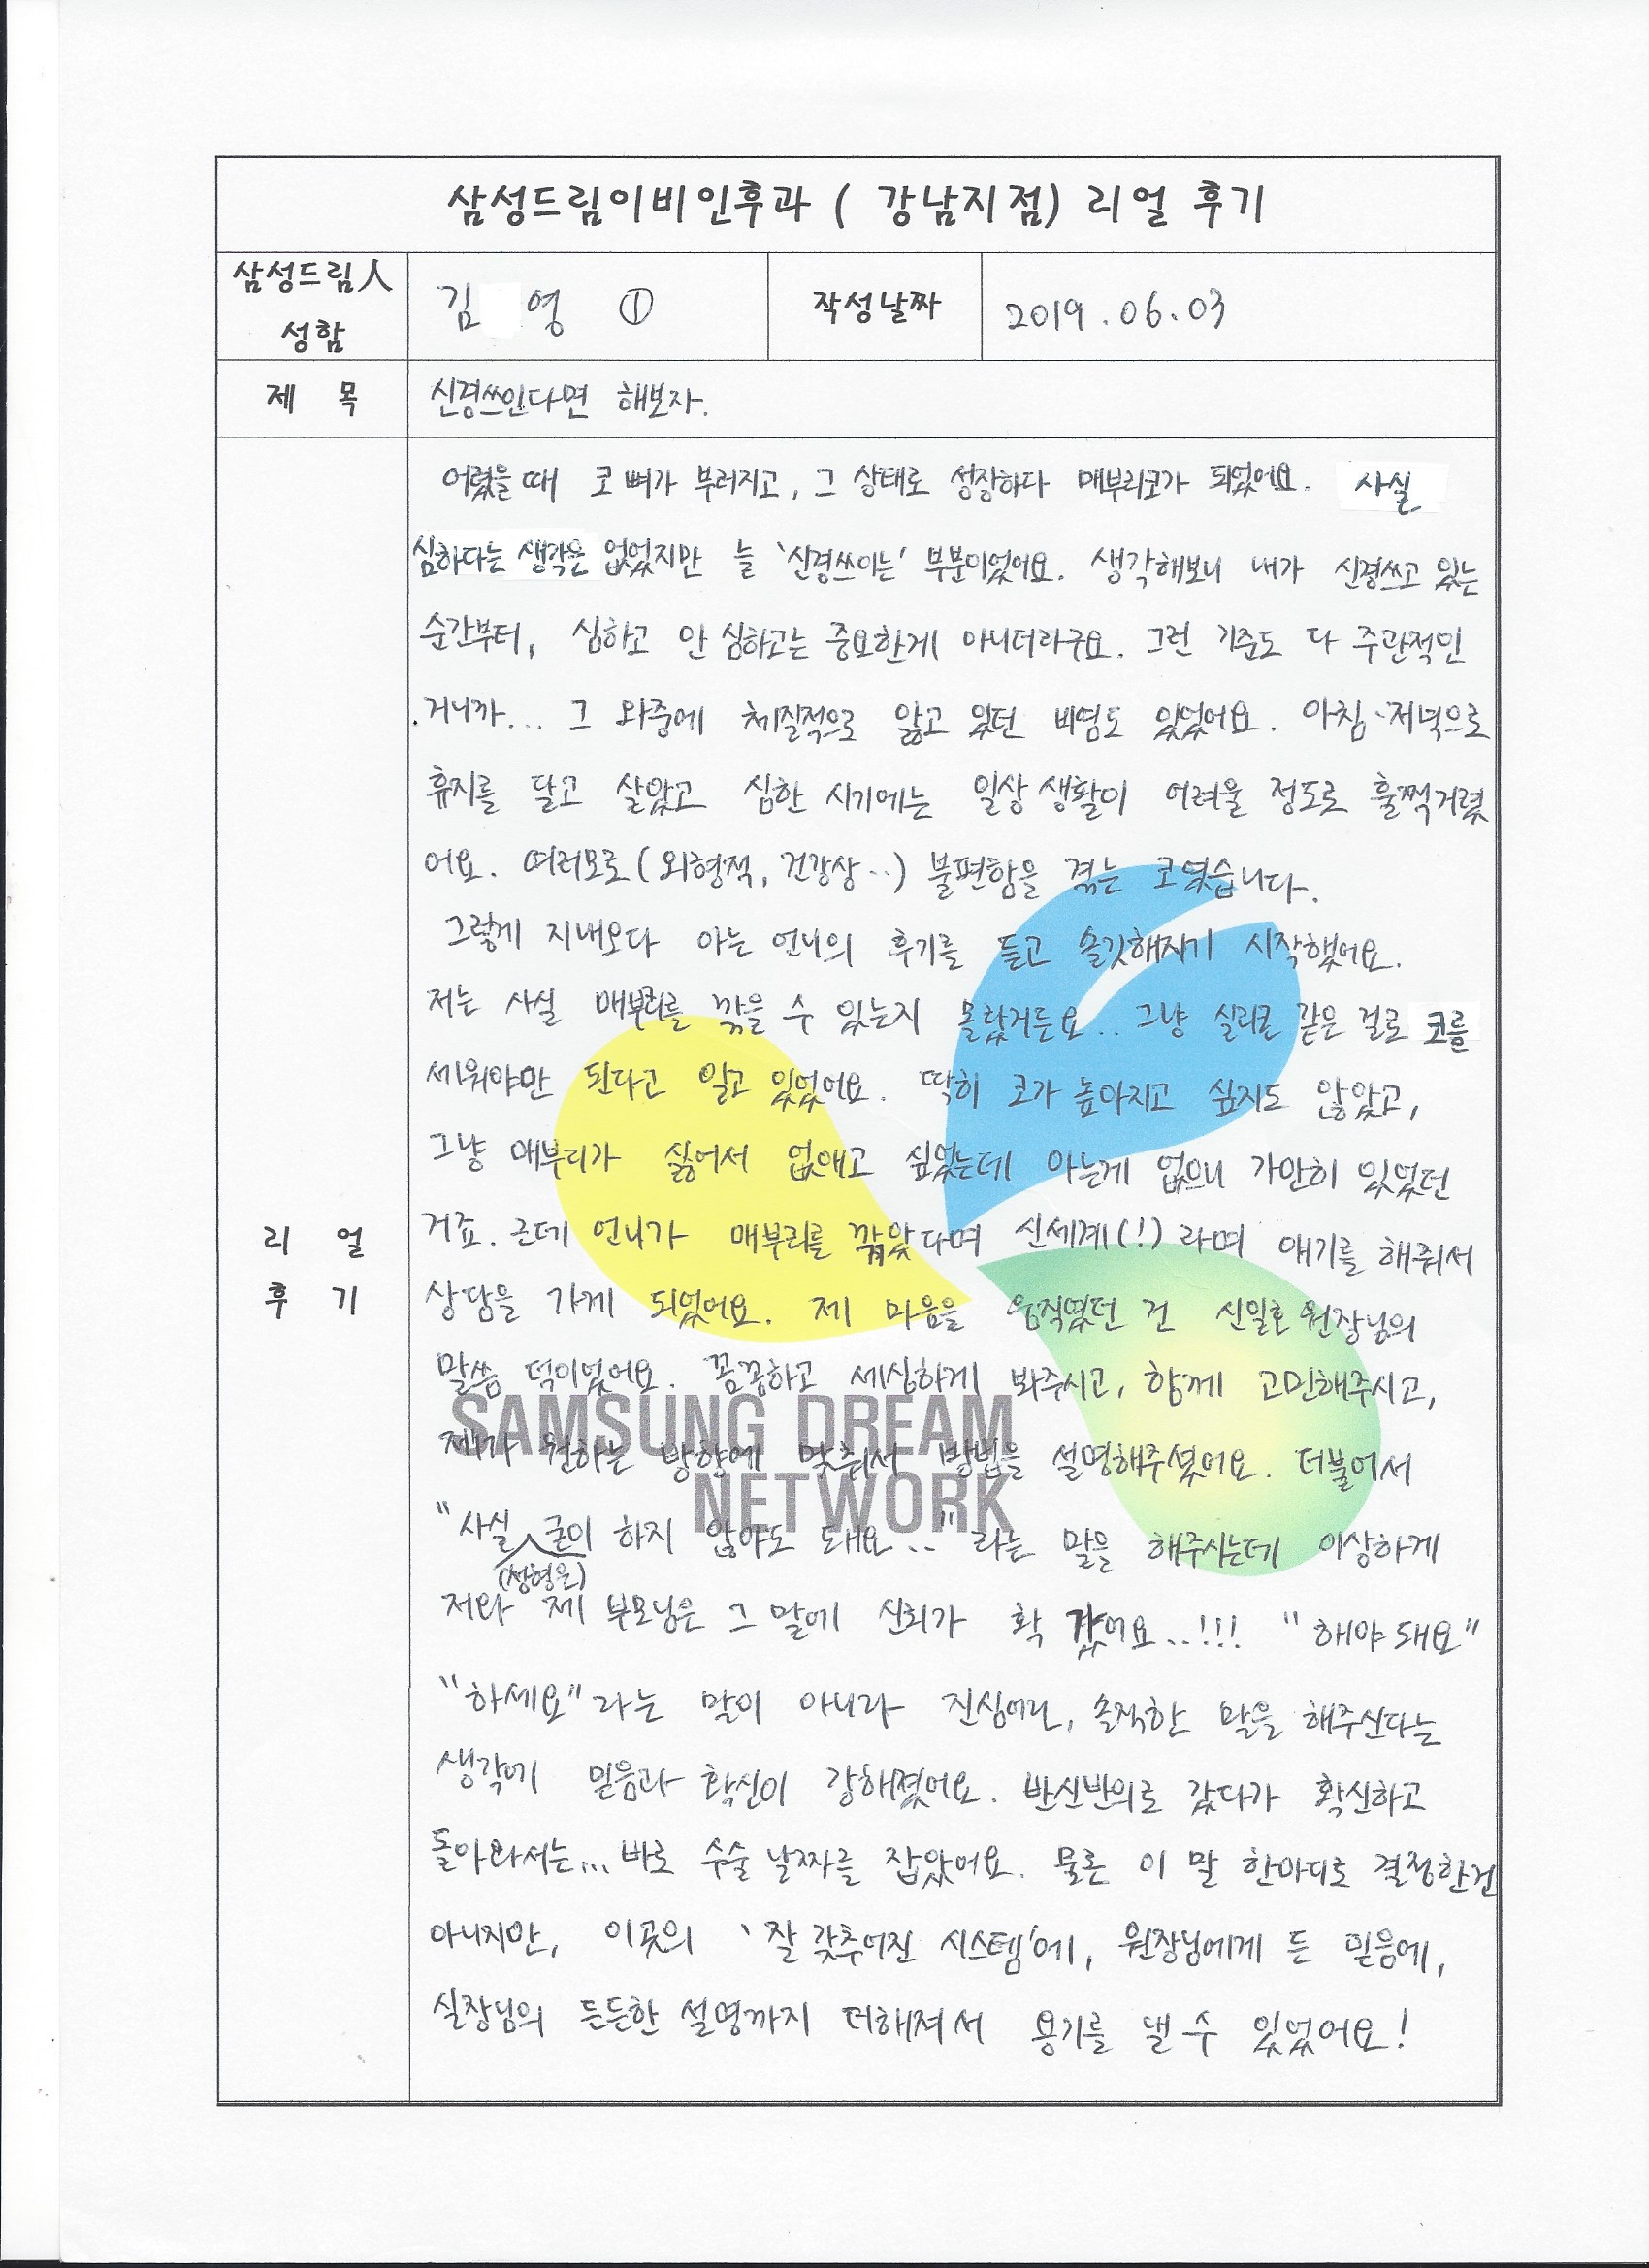 삼성드림이비인후과 ( 강남지점) 리얼 후기
삼성드림人
성함
김 영 ①
작성날짜
2019.06.03
제 목
신경쓰인다면 해보자.
리 얼
후 기
어렸을때 코 뼈가 부러지고, 그 상태로 성장하다 매부리코가 되었어요. 사실
심하다는 생각은 없었지만 늘 '신경쓰이는' 부분이었어요. 생각해보니 내가 신경쓰고 있는
순간부터, 심하고 안 심하고는 중요한게 아니더라구요. 그런 기준도 다 주관적인
거니까... 그 와중에 체질적으로 앓고 있던 비염도 있었어요. 아침·저녁으로
휴지를 달고 살았고 심한 시기에는 일상 생활이 어려울 정도로 훌쩍거렸
어요. 여러모로(외형적, 건강상..) 불편함을 겪는 코였습니다.
그렇게 지내오다 아는 언니의 후기를 듣고 솔깃해지기 시작했어요.
저는 사실 매부리를 깎을 수 있는지 몰랐거든요.. 그냥 실리콘 같은 걸로 코를
세워야만 된다고 알고 있었어요. 딱히 코가 높아지고 싶지도 않았고,
그냥 매부리가 싫어서 없애고 싶었는데 아는게 없으니 가만히 있었던
거죠. 근데 언니가 매부리를 깎았다며 신세계(!)라며 얘기를 해줘서
상담을 가게 되었어요. 제 마음을 움직였던 건 신일호 원장님의
말씀 덕이었어요. 꼼꼼하고 세심하게 봐주시고, 함께 고민해주시고,
제가 원하는 방향에 맞춰서 방법을 설명해주셨어요. 더불어서
"사실 굳이 하지 않아도 돼요.." 라는 말을 해주시는데 이상하게
(성형은)
저와 제 부모님은 그 말에 신뢰가 확 갔어요..!!! "해야돼요"
"하세요"라는 말이 아니라 진심어린, 솔직한 말을 해주신다는
생각에 믿음과 확신이 강해졌어요. 반신반의로 갔다가 확신하고
돌아와서는... 바로 수술 날짜를 잡았어요. 물론 이 말 한마디로 결정한건
아니지만, 이곳의 '잘 갖추어진 시스템'에, 원장님에게 든 믿음에,
실장님의 든든한 설명까지 더해져서 용기를 낼 수 있었어요!
SAMSUNG DREAM
NETWORK